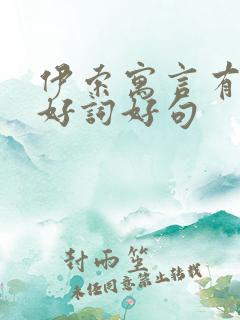 伊索寓言有
好詞好句
封雨笙
未经同意禁止转载